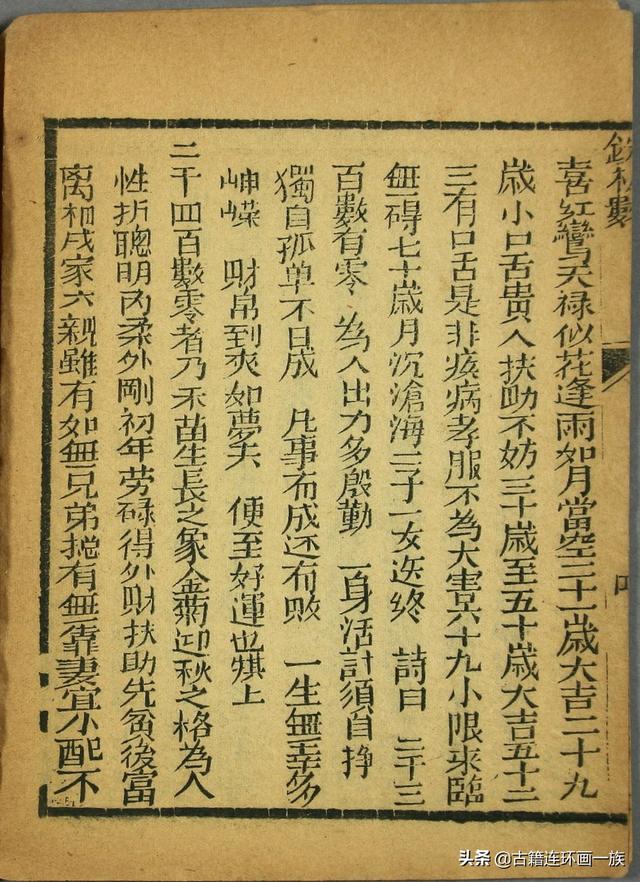 喜紅鸞与天禄似花逢雨如月當空二十一歲大吉二十九
歲小口舌貴人扶助不妨三十歲至五十歲大吉五十二
三有口舌是非疾病孝服不為大害六十九小限來臨
無碍七十歲月沉滄海二子一女送終 詩曰 二千三
百數有零 為人出力多殷勤 一身活計須自挣
獨自孤单不日成 凡事有成还有敗 一生無幸多
崢嶸 財帛到來如夢失 便至好運也
二千四百數零者乃禾苗生長之象金菊迎秋之格為人
性折聰明内柔外剛初年劳碌得外財扶助先貧後富
离祖成家六親雖有如無兄弟捴有無靠妻宜小配不
头条 @古籍连环画一族